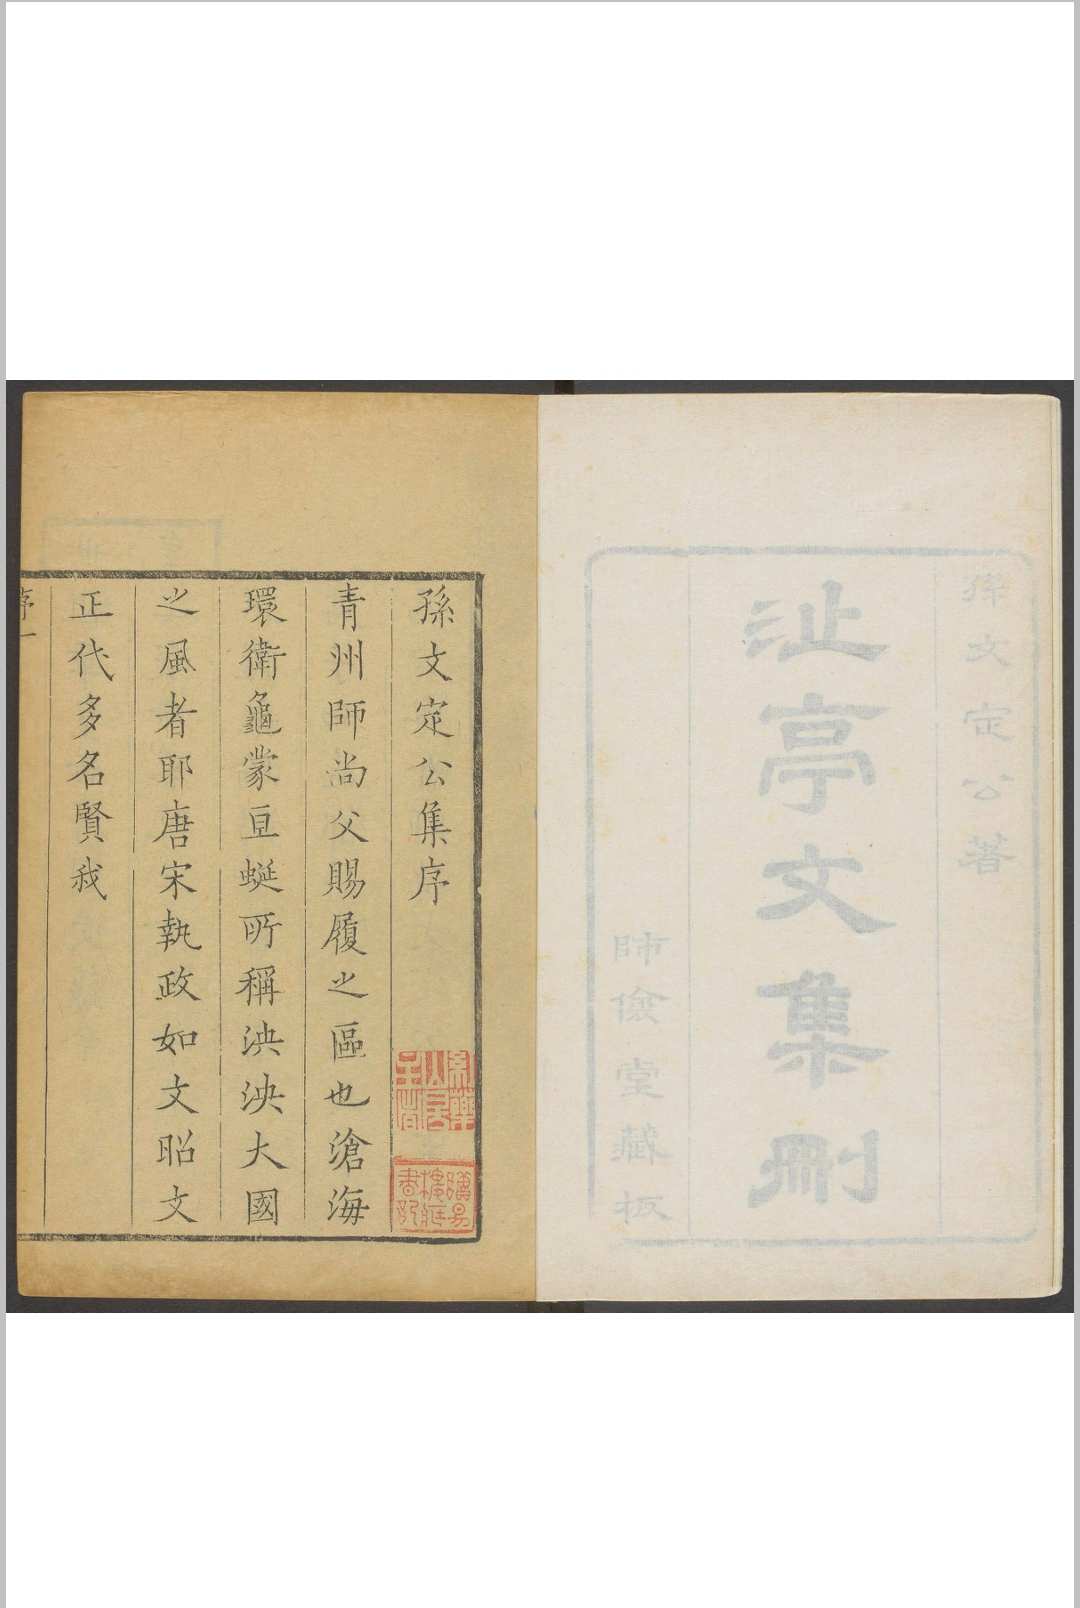 孫文定公著
沚亭文集刪
師儉堂藏板
孫文定公集序
青州師尚父賜履之區也滄海
環衛龜蒙亘蜒所稱泱泱大國
之風者耶唐宋執政如文昭文
正代多名賢我
序一